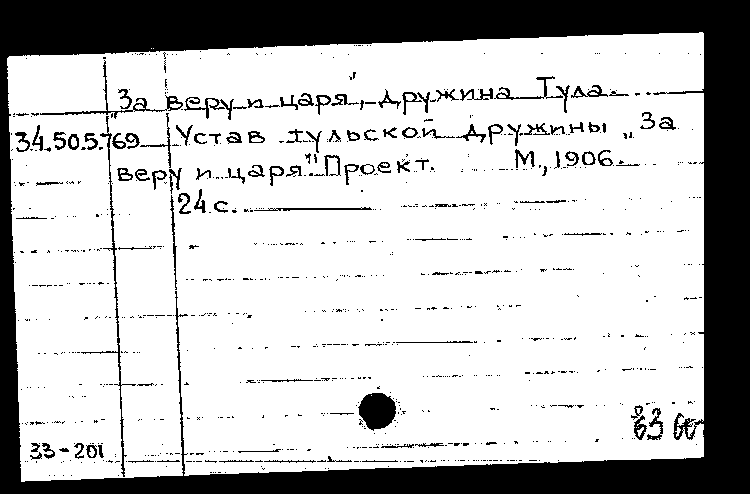 „За веру и царя", дружина Тула.
34.505.769 Устав тульской дружины „За
веру и царя". Проект. М., 1906.
24 с.
33-201